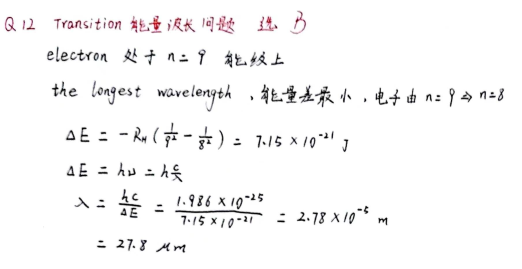 Q12 Transition 能量波长问题 选 B
electron 处于 n = 9 能级上
the longest wavelength ，能量差最小，电子由 n = 9 ⇒ n=8
ΔE = -R_H (1/9² - 1/8²) = 7.15 × 10⁻²¹ J
ΔE = hν = h c/λ
λ = hc/ΔE = 1.986 × 10⁻²⁵ / 7.15 × 10⁻²¹ = 2.78 × 10⁻⁵ m
= 27.8 μm